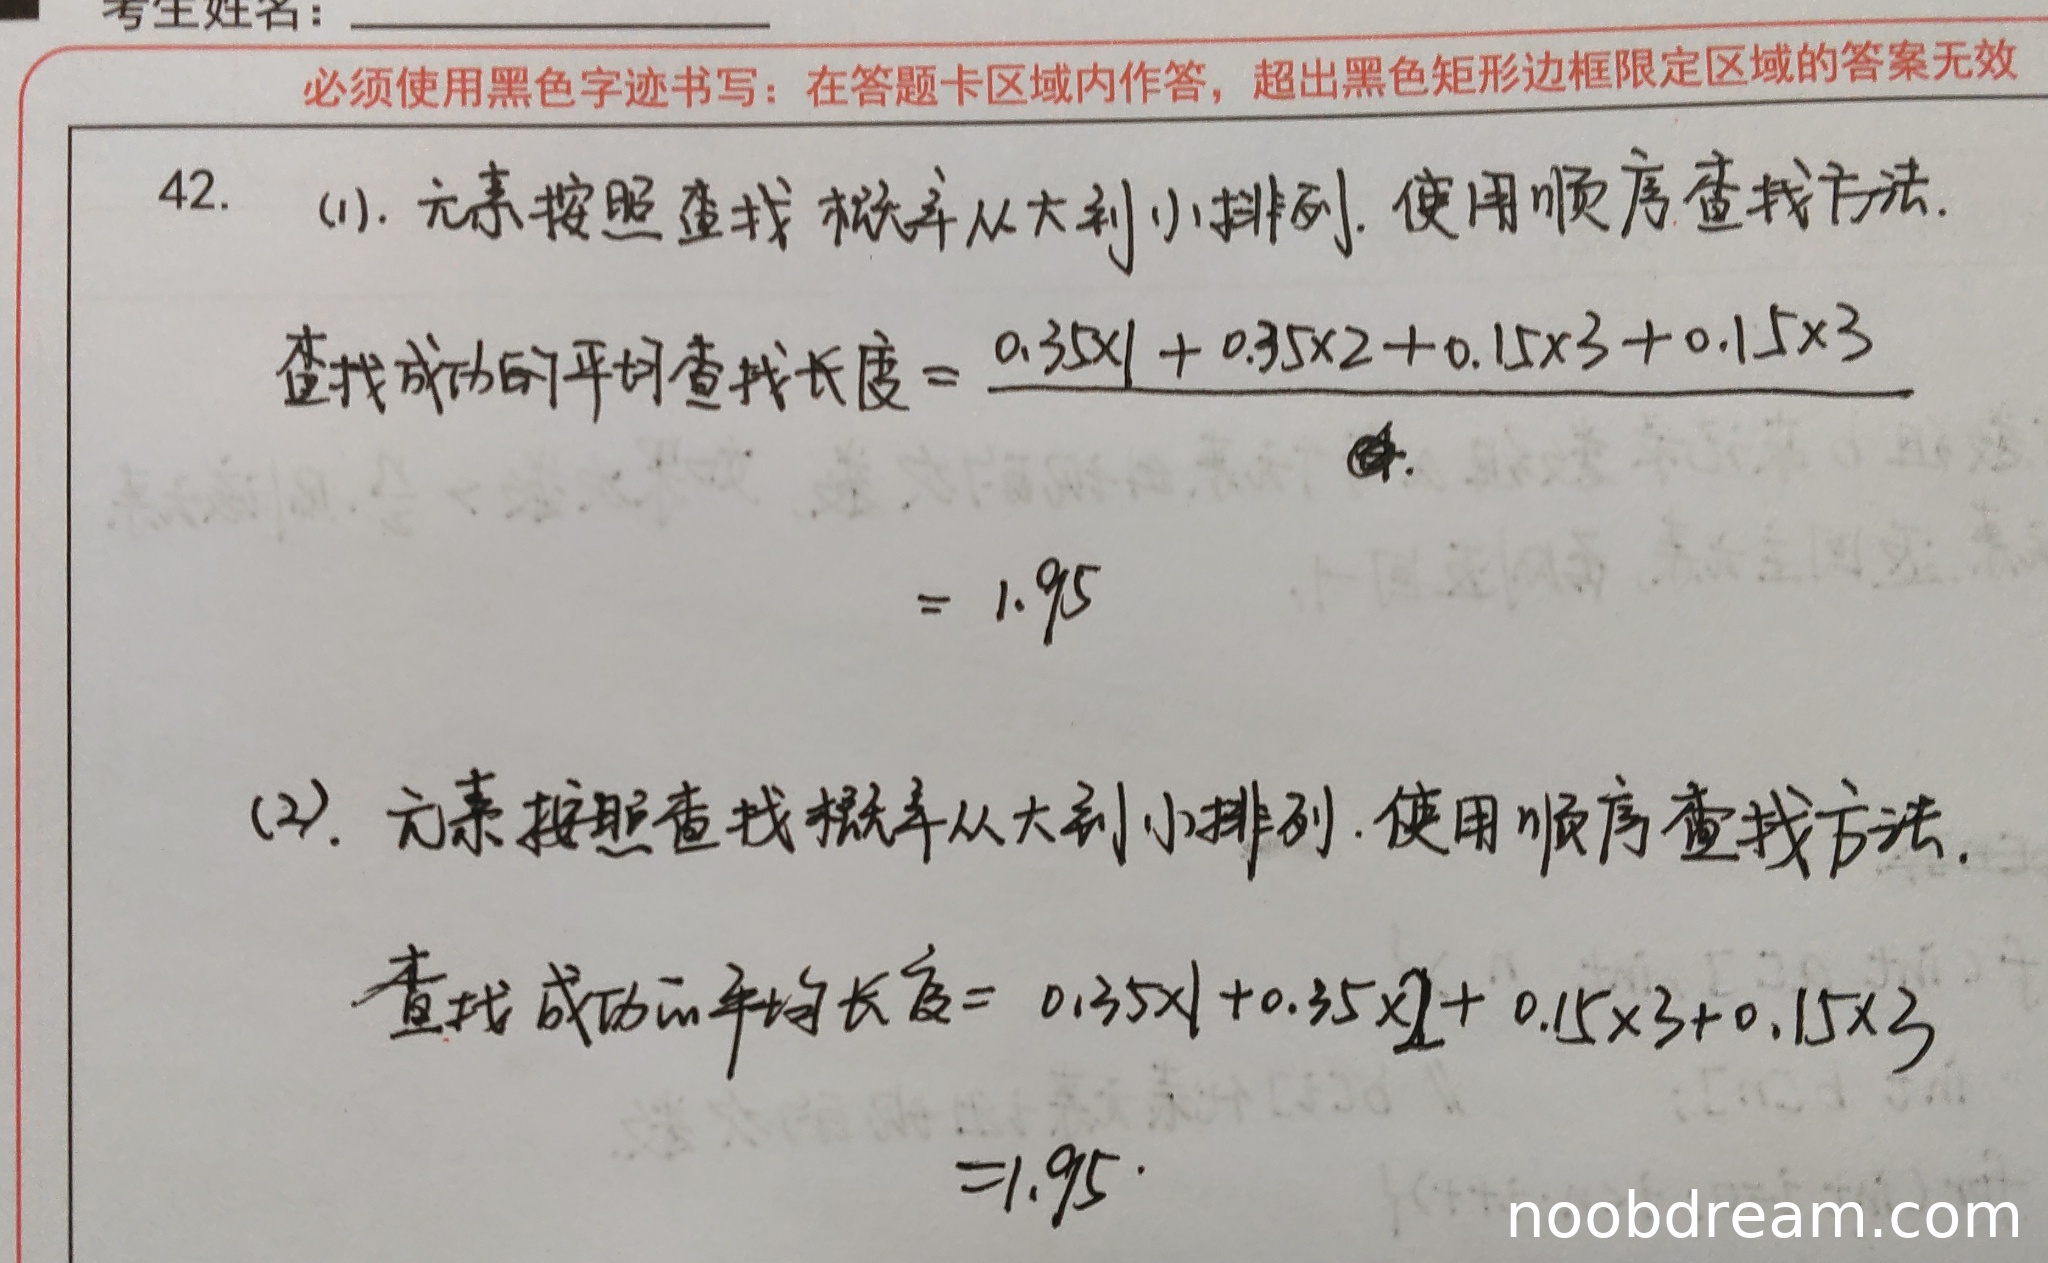 考生姓名：
必须使用黑色字迹书写：在答题卡区域内作答，超出黑色矩形边框限定区域的答案无效
42. (1). 元素按照查找概率从大到小排列. 使用顺序查找方法.
查找成功的平均查找长度 = 0.35×1 + 0.35×2 + 0.15×3 + 0.15×3
= 1.95
(2). 元素按照查找概率从大到小排列. 使用顺序查找方法.
查找成功的平均长度 = 0.35×1 + 0.35×2 + 0.15×3 + 0.15×3
=1.95.
noobdream.com